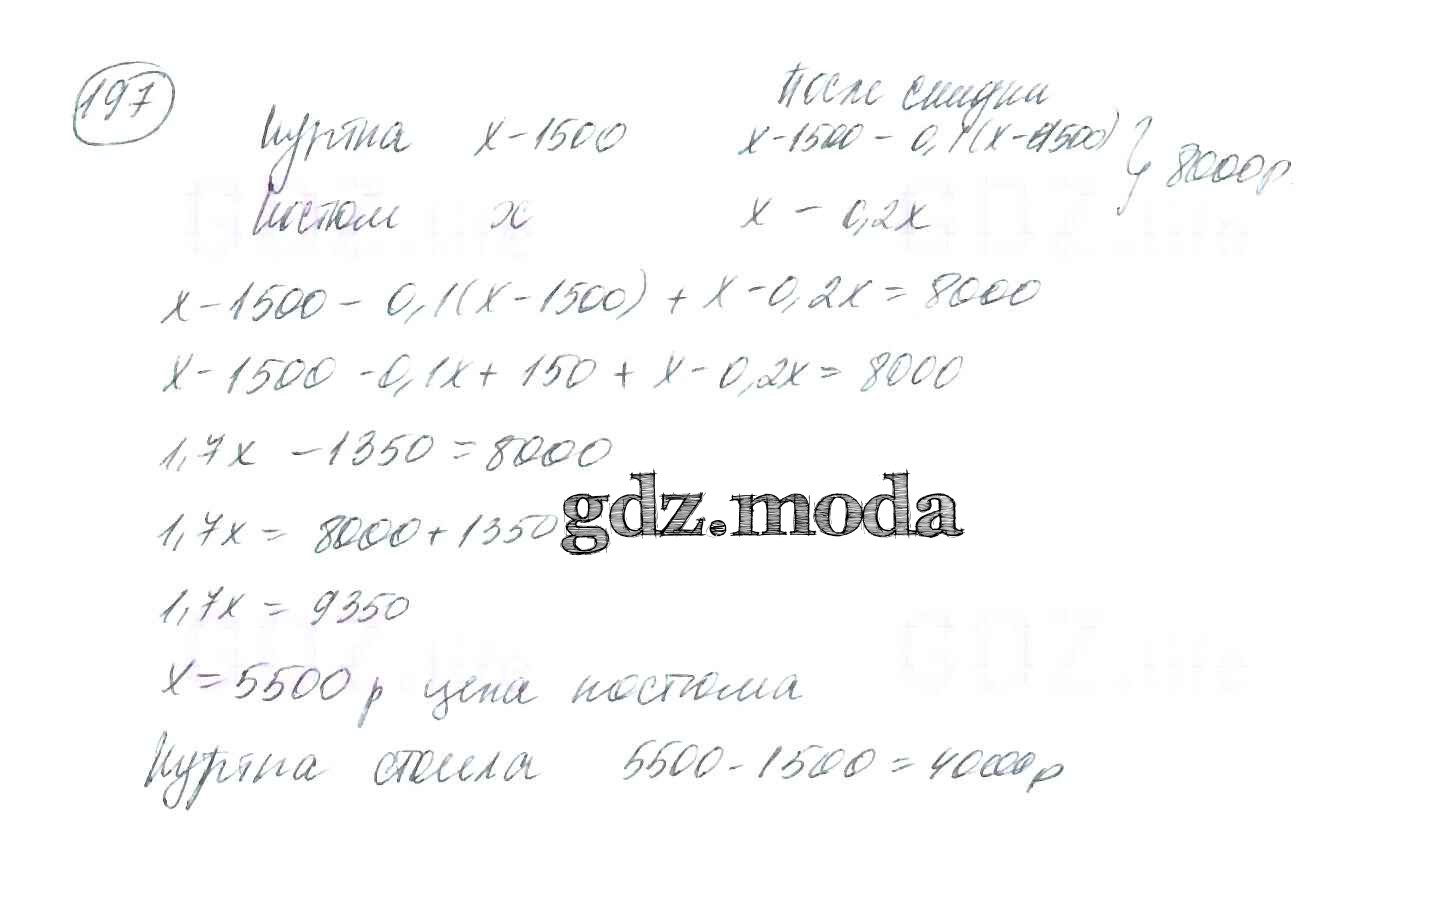 197
После скидки
Куртка x - 1500 x - 1500 - 0,1(x - 1500) } 8000р.
Костюм x x - 0,2x
x - 1500 - 0,1(x - 1500) + x - 0,2x = 8000
x - 1500 - 0,1x + 150 + x - 0,2x = 8000
1,7x - 1350 = 8000
1,7x = 8000 + 1350
gdz.moda
1,7x = 9350
x = 5500 р цена костюма
Куртка стоила 5500 - 1500 = 4000р
GDZ.life
GDZ.life
GDZ.life
GDZ.life